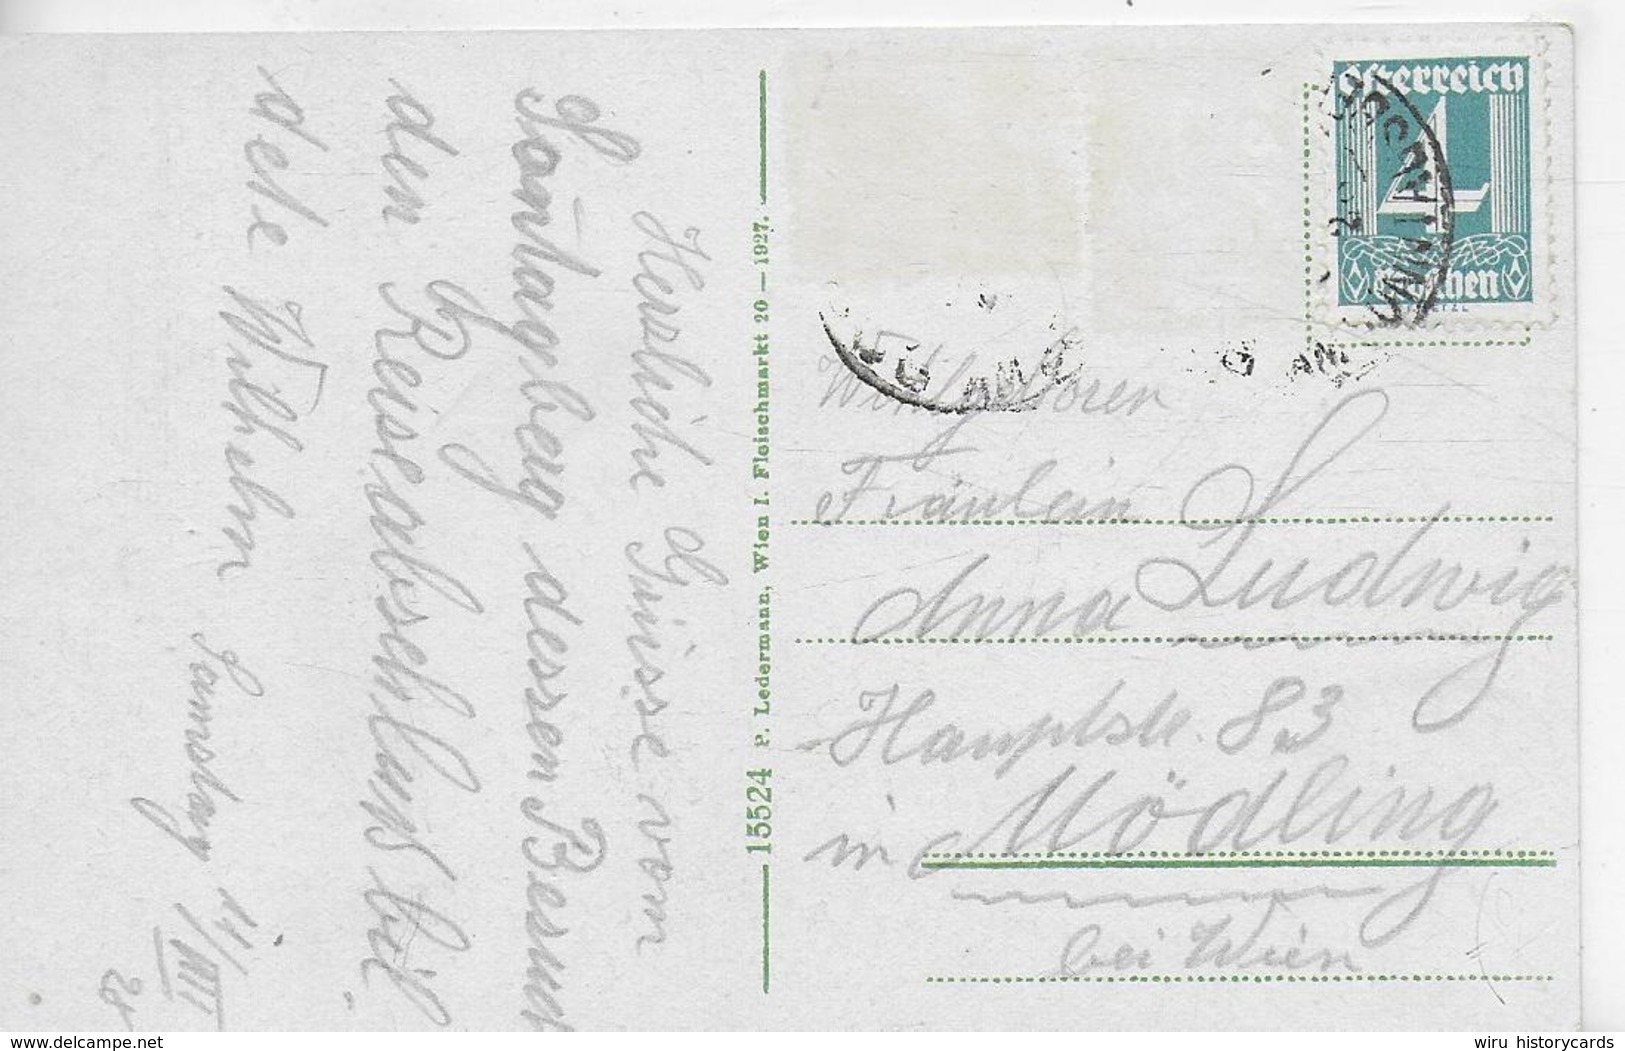 Herzliche Grüsse vom
Sontagberg dessen Besuch
den Reiseabschluss bil
dete Wilhelm
Samstag
15524 P. Ledermann, Wien I. Fleischmarkt 20 — 1927.
Österreich
4
Groschen
Wohlgeboren
Fräulein
Anna Ludwig
Hauptstr. 83
in Mödling
bei Wien
delcampe.net
wiru historycards